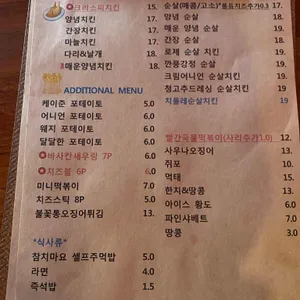 크리스피치킨 15.
양념치킨 17.
간장치킨 17.
마늘치킨 17.
다리&날개 18.
매운양념치킨 18.
ADDITIONAL MENU
케이준 포테이토 5.0
어니언 포테이토 6.0
웨지 포테이토 6.0
달달한 포테이토 6.0
바사칸새우링 7P 6.0
치즈볼 6P 6.0
미니떡볶이 7.0
치즈스틱 8P 5.0
불꽃통오징어튀김 13.
*식사류*
참치마요 셀프주먹밥 5.0
라면 4.0
즉석밥 1.5
순살(매콤/고소) 17.
양념 순살
매운 양념 순살 19.
간장 순살 18.
로제 순살 치킨 19.
깐풍강정 순살 19.
크림어니언 순살치킨 19.
청고추드레싱 순살치킨 19.
치폴레순살치킨 19
빨간국물떡볶이(사리추가1.0) 12.
사우나오징어 13.
쥐포 10.
먹태 15.
한치&땅콩 13.
아이스 황도 6.0
파인샤베트 7.0
땅콩 3.0